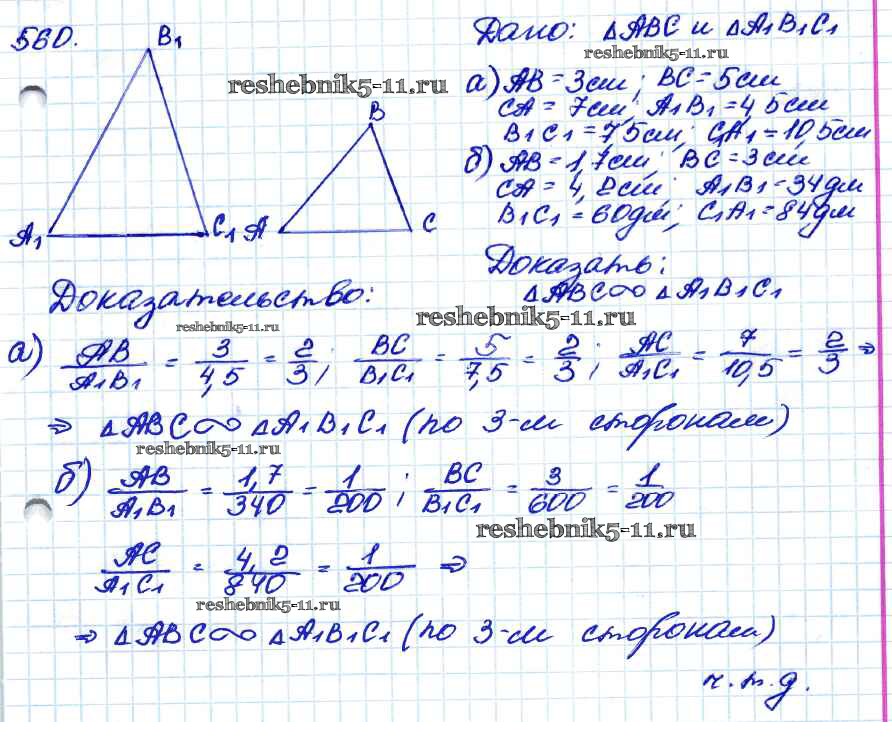 560.
B1
Дано: △ABC и △A1B1C1
reshebnik5-11.ru
reshebnik5-11.ru
а) AB = 3см; BC = 5см
CA = 7см; A1B1 = 4,5см
B1C1 = 7,5см; C1A1 = 10,5см
B
б) AB = 1,7см; BC = 3см
CA = 4,2см; A1B1 = 34дм
B1C1 = 60дм; C1A1 = 84дм
A1 C1 A C
Доказать:
△ABC ∾ △A1B1C1
Доказательство:
reshebnik5-11.ru
reshebnik5-11.ru
а) AB/A1B1 = 3/4,5 = 2/3; BC/B1C1 = 5/7,5 = 2/3; AC/A1C1 = 7/10,5 = 2/3 ⇒
⇒ △ABC ∾ △A1B1C1 (по 3-м сторонам)
reshebnik5-11.ru
б) AB/A1B1 = 1,7/340 = 1/200; BC/B1C1 = 3/600 = 1/200
reshebnik5-11.ru
AC/A1C1 = 4,2/840 = 1/200 ⇒
reshebnik5-11.ru
⇒ △ABC ∾ △A1B1C1 (по 3-м сторонам)
ч.т.д.